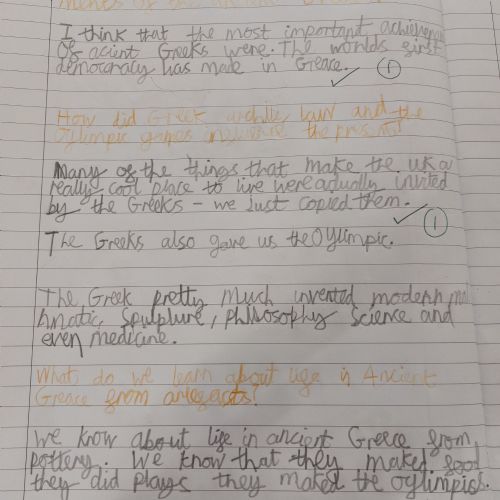 I think that the most important
Of acient Greeks were. The worlds first
democraly has made in Greace.
1
How did Greek and the
Oylimpic games the present?
Many of the things that make the uk a
really cool place to live were actually invited
by the Greeks - we Just copied them.
1
The Greeks also gave us the Oylimpic.
The Greek pretty much invented modern
Sculpture, philosophy Science and
even medicine.
What do we learn about lige in Ancient
Greace from
We know about lige in ancient Greece from
pottery. We know that they maked
they did plays they maked the